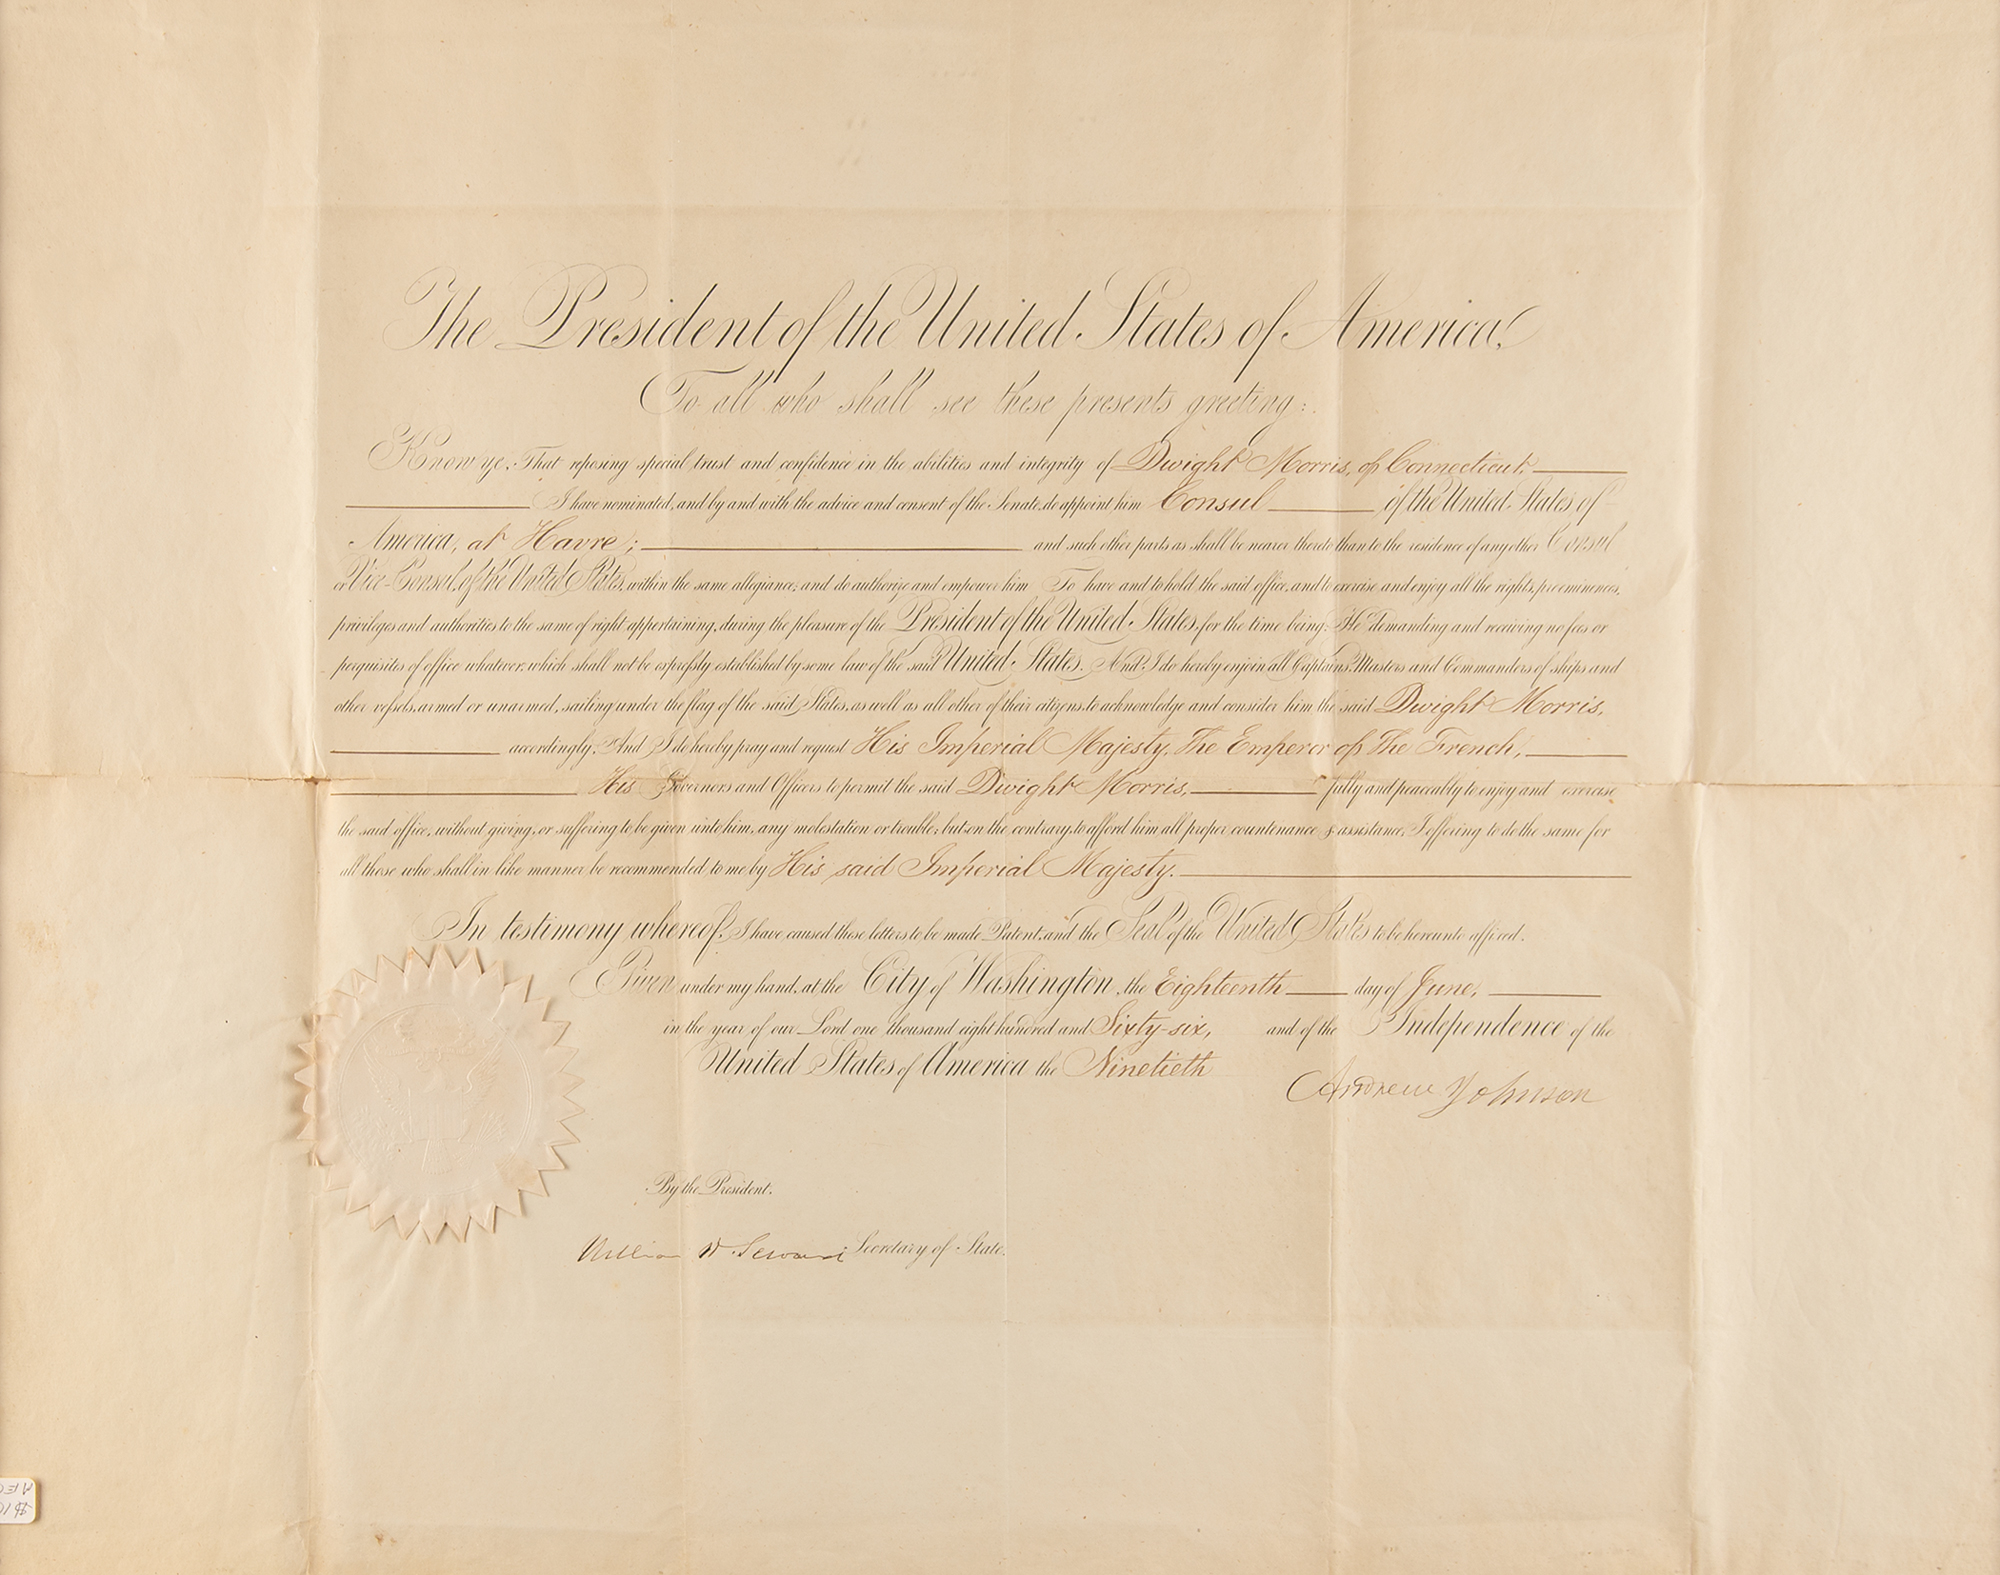 The President of the United States of America,
To all who shall see these presents greeting:
Know ye, That reposing special trust and confidence in the abilities and integrity of Dwight Morris, of Connecticut,
I have nominated, and by and with the advice and consent of the Senate, do appoint him Consul of the United States of
America, at Havre; and such other parts as shall be nearer thereto than to the residence of any other Consul
or Vice-Consul, of the United States, within the same allegiance; and do authorize and empower him To have and to hold, the said office, and to exercise and enjoy all the rights, preeminences,
privileges and authorities to the same of right appertaining, during the pleasure of the President of the United States, for the time being: He demanding and receiving no fees or
perquisites of office whatever, which shall not be expressly established by some law of the said United States. And I do hereby enjoin all Captains, Masters and Commanders of ships and
other vessels, armed or unarmed, sailing under the flag of the said States, as well as all other of their citizens, to acknowledge and consider him the said Dwight Morris,
accordingly. And I do hereby pray and request His Imperial Majesty, The Emperor of The French,
His Governors and Officers to permit the said Dwight Morris, fully and peaceably to enjoy and exercise
the said office, without giving, or suffering to be given unto him, any molestation or trouble; but on the contrary, to afford him all proper countenance & assistance; I offering to do the same for
all those who shall in like manner be recommended to me by His said Imperial Majesty.
In testimony whereof, I have caused these letters to be made Patent, and the Seal of the United States to be hereunto affixed.
Given under my hand, at the City of Washington, the Eighteenth day of June,
in the year of our Lord one thousand eight hundred and Sixty-six, and of the Independence of the
United States of America, the Ninetieth
Andrew Johnson
By the President.
William H. Seward Secretary of State.